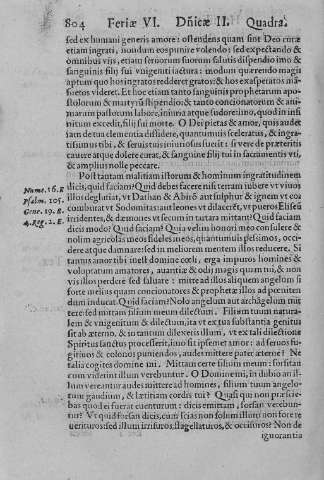 804 Feriæ VI. Dñicæ II. Quadra.
sed ex humani generis amore: ostendens quam sint Deo curæ
etiam ingrati, nondum eos punire volendo: sed expectando &
omnibus viis, etiam seruorum suorum salutis dispendio imo &
sanguinis filij sui vnigeniti iactura: modum quærendo magis
aptum quo hos ingratos redderet gratos: & hos exasperatos mã-
suetos videret. Et hoc etiam tanto sanguinis prophetarum apo-
stolorum & martyrũ stipendio; & tanto concionatorum & ani-
marum pastorum labore, inimo atque sudore simo, quod in infi
nitum excedit, filij sui morte. O Dei pietas & amor, quis audet
iam de tua clementia diffidere, quantumuis sceleratus, & ingra-
tissimus tibi, & seruis tuis iniuriosus fuerit: si vere de præteritis
cauere atque dolere curat, & sanguine filij tui in sacramentis vti,
& amplius nolle peccare.
Post tantam malitiam istorum & hominum ingratitudinem
dicis, quid faciam? Quid debes facere nisi terram iubere vt viuos
illos deglutiat, vt Dathan & Abirõ aut sulphur & ignem vt eos
comburat vt Sodomitas aut leones vt dilaceret, vt pueros Elisęũ
irridentes, & dæmones vt secum in tartara mittant? Quid faciam
dicis modo? Quid faciam? Quia velim honori meo consulere &
nolim agricolas meos fideles meos, quantumuis pessimos, occi-
dere atque damnare: sed in meliorem mentem illos reducere. Si
tantus amor tibi inest domine cœli, erga impuros homines &
voluptatum amatores, auaritiæ & odij magis quam tui, & non
vis illos perdere sed saluare: mitte ad illos aliquem angelum si
forte melius quam concionatores & prophetæ illos ad pœniten
dum inducat. Quid faciam? Nolo angelum aut archãgelum mit
tere: sed mittam filium meum dilectum. Filium tuum natura-
lem & vnigenitum & dilectum, ita vt ex tua substantia genitus
sit ab æterno, & in tantum dilexeris illum, vt ex tali dilectione
Spiritus sanctus processerit, imo sit ipsemet amor: ad seruos fu-
gitiuos & colonos puniendos, audes mittere pater æterne? Ne
talia cogites domine mi. Mittam certe filium meum: forsitan
cum viderint illum verebuntur. O Domine mi, in dubio an il-
lum vereantur audes mittere ad homines, filium tuum angelo-
rum gaudium, & lætitiam cordis tui? Quasi qui non præscie-
bas quod ei fuerat euenturum: dicis emittam, forsan verebun-
tur? Vt quid forsan dicis, cum scias non solum illum non fore te
uerituros: sed illum irrisuros, flagellaturos, & occisuros? Non de
ignorantia
Nume. 16. E
Psalm. 105.
Gene. 19. E.
4. Reg. 2. E.